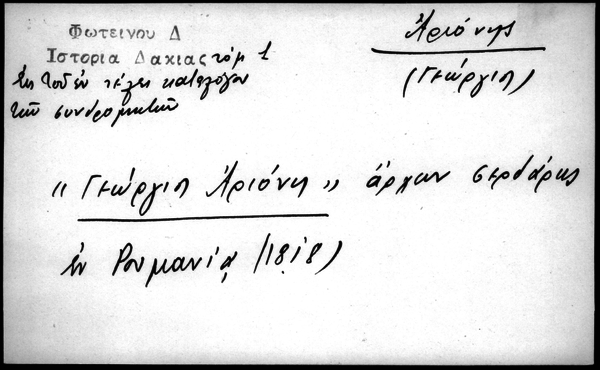 Φωτεινου Δ
Ιστορια Δακιας τόμ 1
Ἐκ τοῦ ἐν τέλει καταλόγου
τῶν συνδρομητῶν
Ἀριόνης
(Γεώργιος)
"Γεώργιος Ἀριόνης" ἄρχων σερδάρης
ἐν Ρουμανίᾳ (1818)